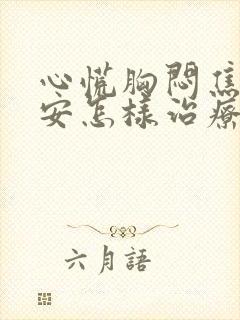 心慌胸悶焦
安怎樣治療
六月語